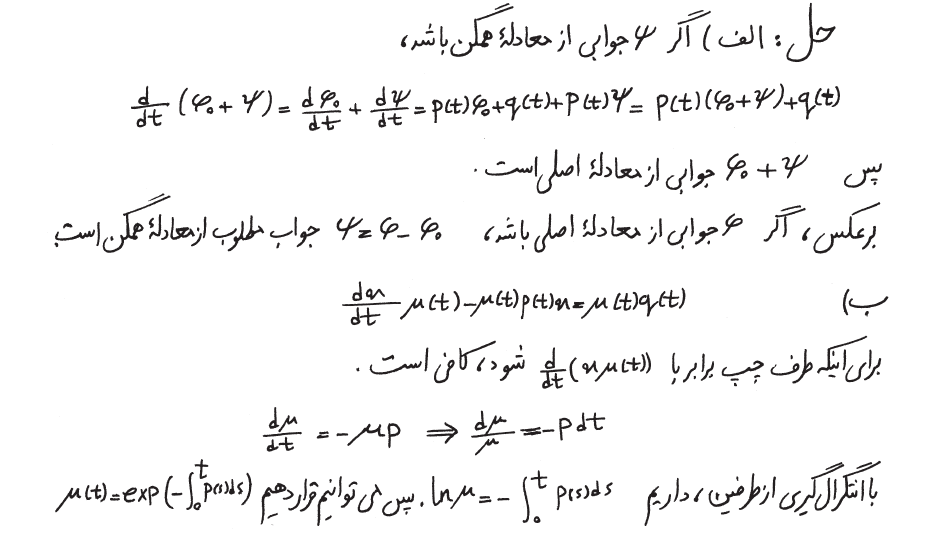 حل: الف) اگر ψ جوابی از معادلهٔ همگن باشد،
d/dt (φ₀ + ψ) = dφ₀/dt + dψ/dt = p(t)φ₀ + q(t) + p(t)ψ = p(t)(φ₀ + ψ) + q(t)
پس φ₀ + ψ جوابی از معادلهٔ اصلی است.
برعکس، اگر φ جوابی از معادلهٔ اصلی باشد، ψ = φ - φ₀ جواب مطلوب از معادلهٔ همگن است
ب) dx/dt μ(t) - μ(t)p(t)x = μ(t)q(t)
برای اینکه طرف چپ برابر با d/dt (xμ(t)) شود، کافی است.
dμ/dt = -μp ⇒ dμ/μ = -pdt
با انتگرال‌گیری از طرفین، داریم ln μ = -∫₀ᵗ p(s)ds. پس می‌توانیم قرار دهیم μ(t) = exp(-∫₀ᵗ p(s)ds)